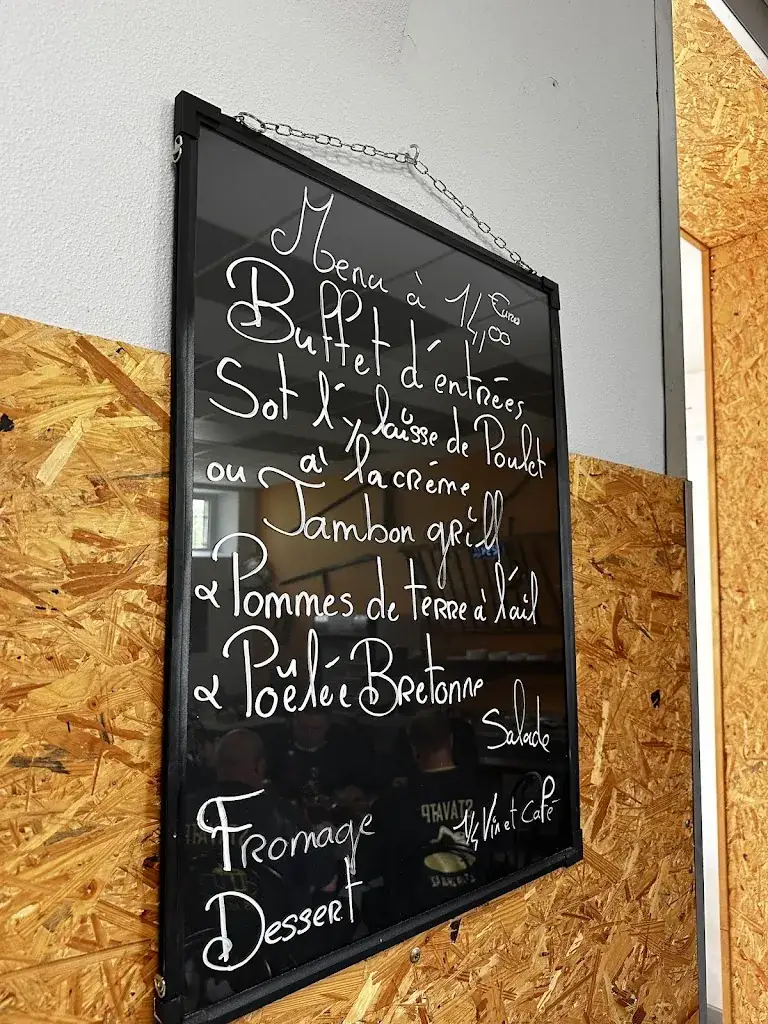 Menu à 14,00 Euros
Buffet d'entrées
Sot l'y laisse de Poulet
à la crème
ou Jambon grill
& Pommes de terre à l'ail
& Poëlée Bretonne
Salade
Fromage
1/4 Vin et Café
Dessert